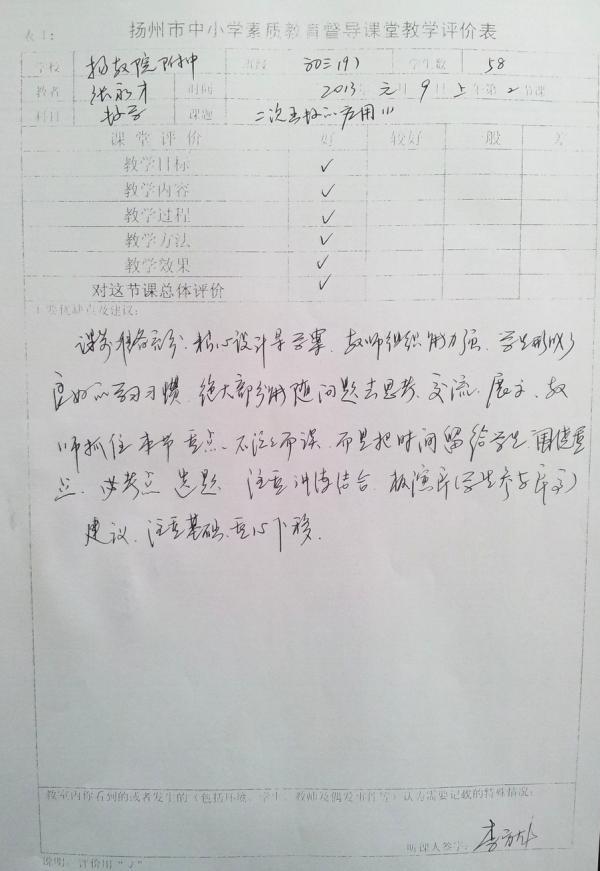 表1: 扬州市中小学素质教育督导课堂教学评价表
学校 扬教院附中 班级 初三(9) 学生数 58
教者 张永才 时间 2013年元月9日上午第2节课
科目 数学 课题 二次函数的应用(1)
课堂评价 好 较好 一般 差
教学目标 ✓
教学内容 ✓
教学过程 ✓
教学方法 ✓
教学效果 ✓
对这节课总体评价 ✓
主要优缺点及建议:
课前准备充分、精心设计导学案、教师组织能力强、学生形成了
良好的学习习惯、绝大部分能随问题去思考、交流、展示、教
师抓住本节重点、不泛泛而谈、而是把时间留给学生、围绕重
点、必考点选题、注重讲练结合、板演率(学生参与率高)
建议、注重基础、重心下移.
教室内你看到的或者发生的(包括环境、学生、教师及偶发事件等)认为需要记载的特殊情况:
听课人签字:
说明: 评价用“√”